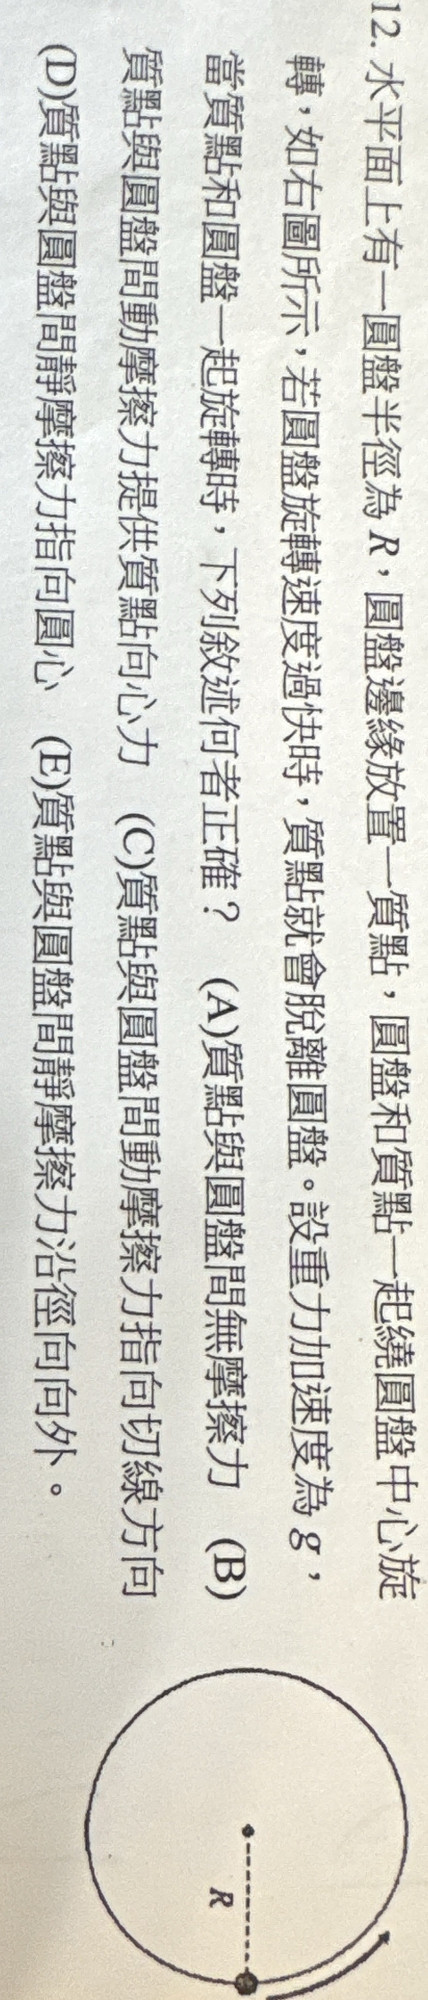 12. 水平面上有一圓盤半徑為 R，圓盤邊緣放置一質點，圓盤和質點一起繞圓盤中心旋
轉，如右圖所示，若圓盤旋轉速度過快時，質點就會脫離圓盤。設重力加速度為 g，
當質點和圓盤一起旋轉時，下列敘述何者正確？ (A)質點與圓盤間無摩擦力 (B)
質點與圓盤間動摩擦力提供質點向心力 (C)質點與圓盤間動摩擦力指向切線方向
(D)質點與圓盤間靜摩擦力指向圓心 (E)質點與圓盤間靜摩擦力沿徑向向外。
R